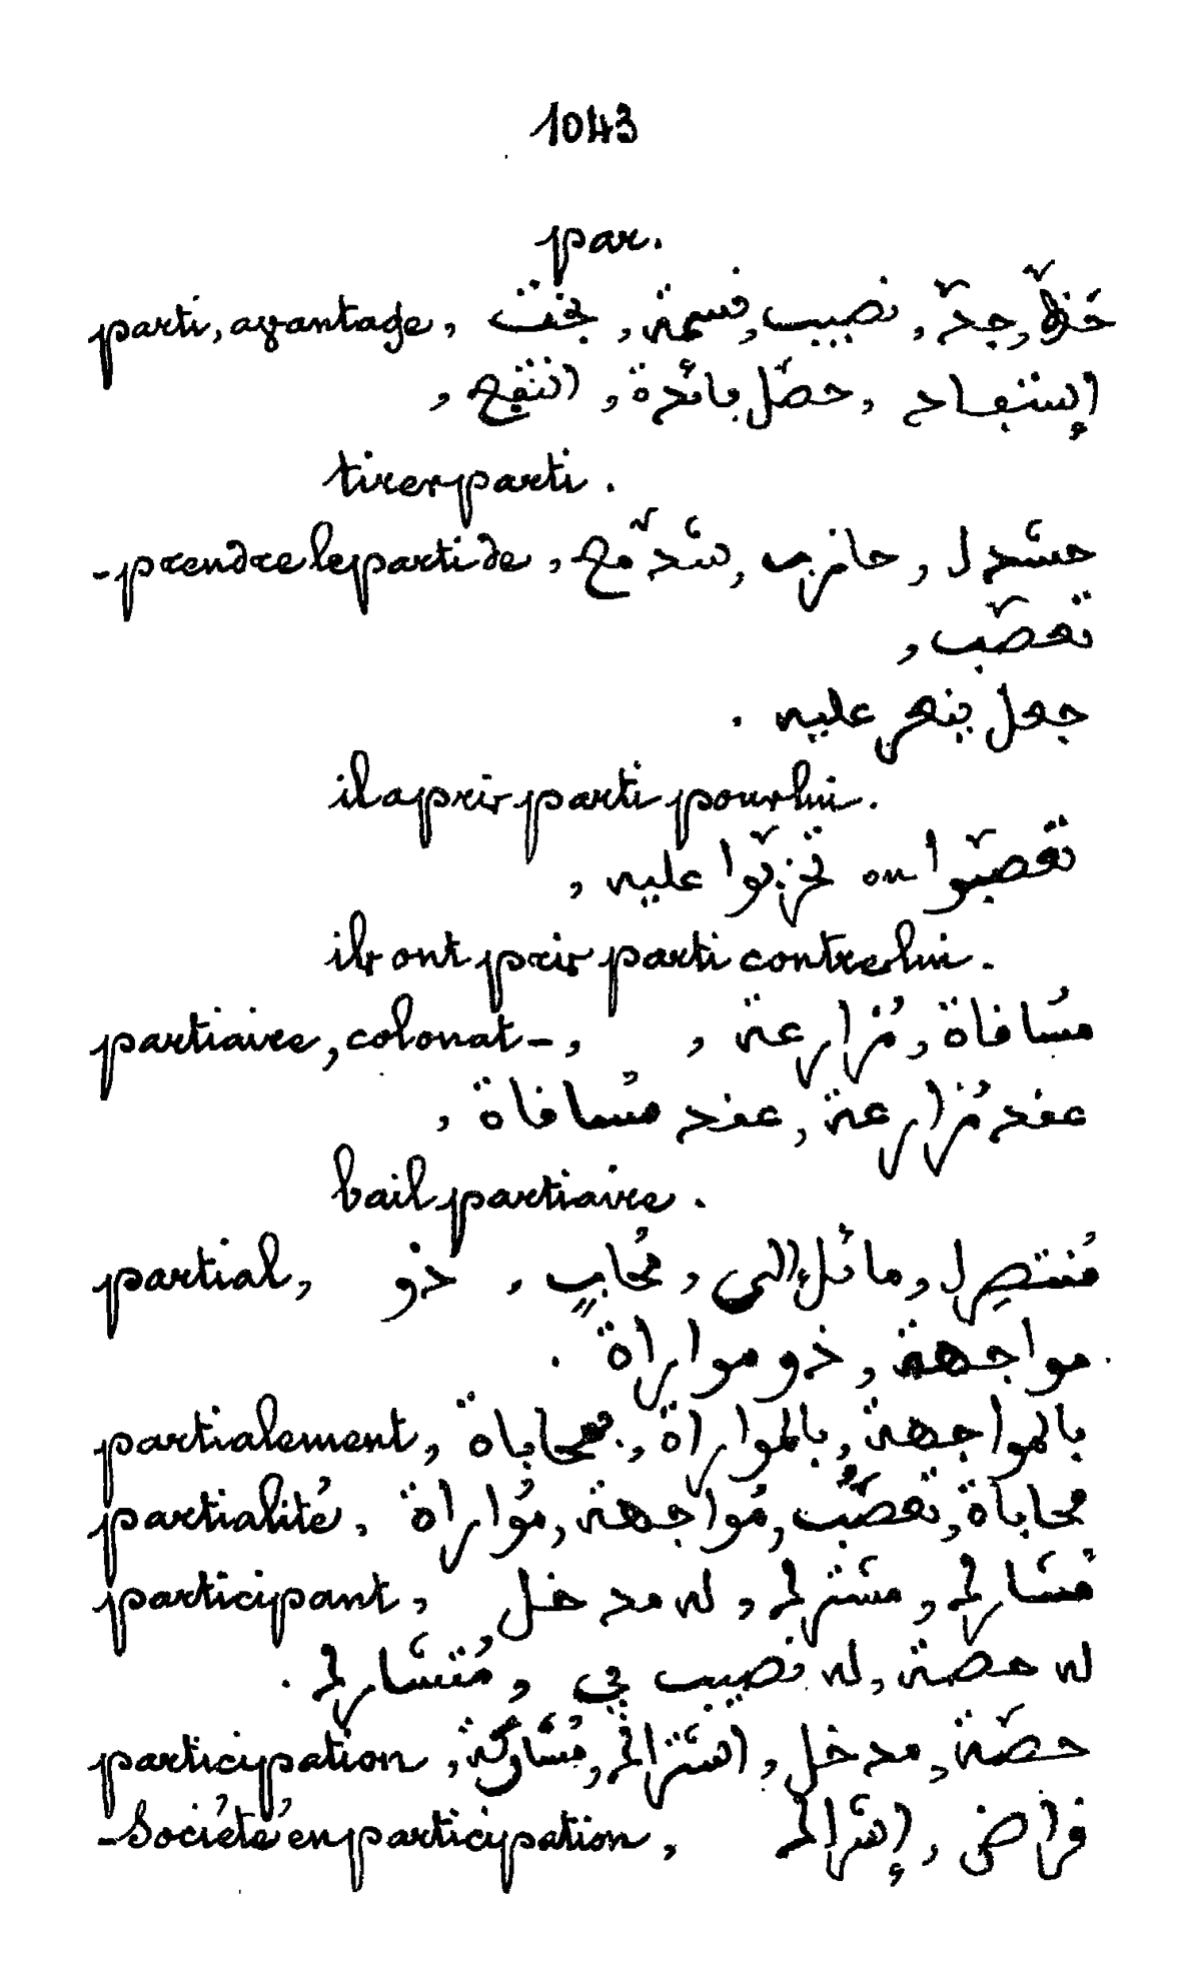 1043
par.
parti, avantage, حَظّ, جدّ, نصيب, قسمة, بخت,
إستنفاع, حصّل فائدة, انتفع,
tirer parti.
- prendre le parti de, حشد ل, حازب, شدّ مع,
تعصّب,
جعل ينعر عليه.
il a pris parti pour lui.
تعصّبوا ou تحزّبوا عليه,
ils ont pris parti contre lui.
partiaire, colonat -, مُساقاة, مُزارعة,
عقد مُزارعة, عقد مُساقاة,
bail partiaire.
partial, مُنتصِر ل, مائل إلى, مُحابٍ, ذو
مواجهة, ذو مواراة.
partialement, بالمواجهة, بالمواراة, بمحاباة
partialité, محاباة, تعصُّب, مُواجهة, مُواراة.
participant, مُشارك, مشترك, له مدخل
له حصة, له نصيب في, مُتشارك.
participation, حصّة, مدخل, اشتراك, مُشاركة,
- Société en participation, قراض, إشراك